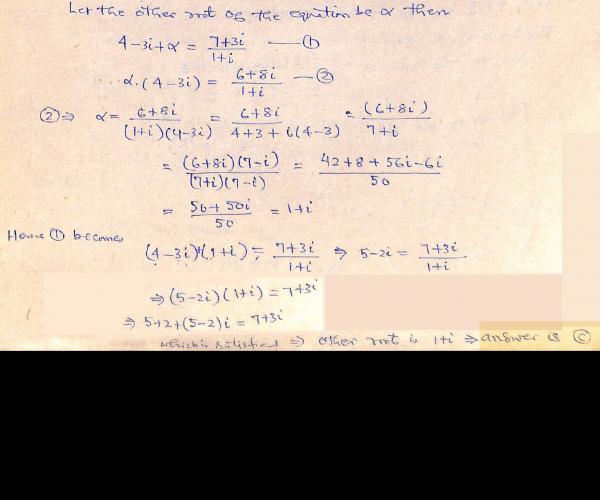 Let the other root of the equation be α then
4-3i+α = (7+3i)/(1+i) —— ①
α.(4-3i) = (6+8i)/(1+i) — ②
②⇒ α = (6+8i)/((1+i)(4-3i)) = (6+8i)/(4+3+i(4-3)) = (6+8i)/(7+i)
= ((6+8i)(7-i))/((7+i)(7-i)) = (42+8+56i-6i)/50
= (50+50i)/50 = 1+i
Hence ① becomes
(4-3i)+(1+i) = (7+3i)/(1+i) ⇒ 5-2i = (7+3i)/(1+i)
⇒ (5-2i)(1+i) = 7+3i
⇒ 5+2+(5-2)i = 7+3i
which is satisfied ⇒ other root is 1+i ⇒ answer is ©